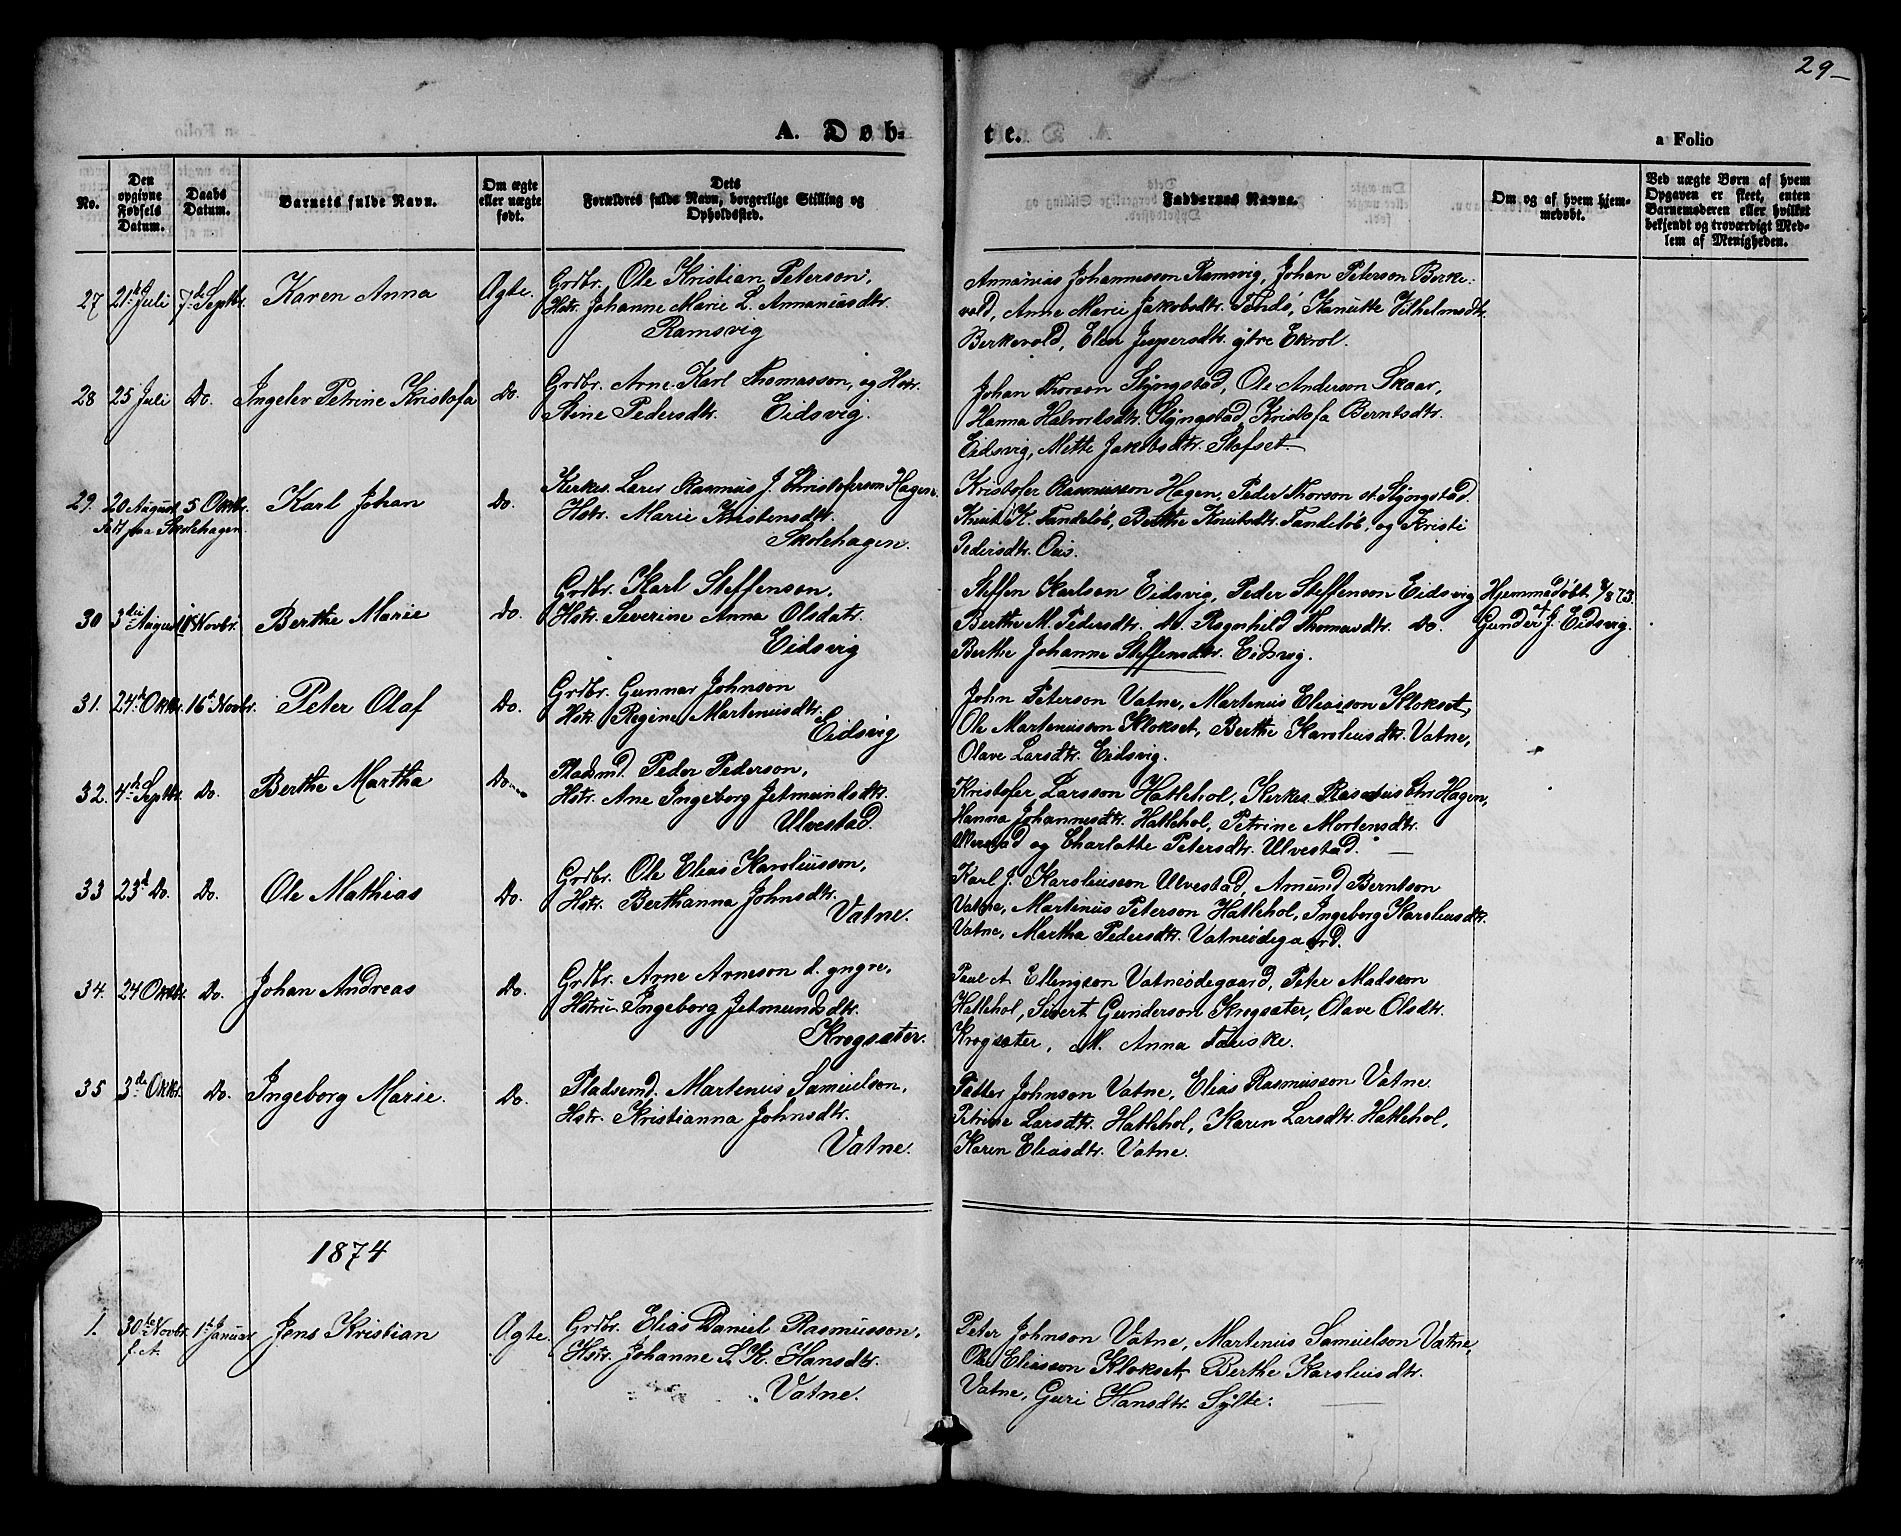 29
A. Døb-
te.
a Folio
No.
Den opgivne Fødsels Datum.
Daabs Datum.
Barnets fulde Navn.
Om ægte eller uægte født.
Dets Forældres fulde Navn, borgerlige Stilling og Opholdssted.
Faddernes Navne.
Om og af hvem hjemmedøbt.
Ved uægte Børn af hvem Opgaven er skeet, enten Barnemoderen eller hvilket bekjendt og troværdigt Medlem af Menigheden.
27 21de Juli 7de Septbr. Karen Anna Ægte. Grdbr. Ole Kristian Peterson,
Hstr. Johanne Marie L. Annaniasdtr.
Ramsvig
Annanias Johannesson Ramsvig, Johan Peterson Berke-
vold, Anne Marie Jakobsdtr. Kanutte Vilhelmsdtr.
Berkevold, Elen Jespersdtr. ytre Ekrol.
28 25 Juli Do. Ingelev Petrine Kristofa do. Grdbr. Arne Karl Thomasson, og Hstr.
Stine Pedersdtr. Eidsvig.
Johan Thorson Slyngstad, Ole Anderson Skaar,
Hanna Halvordsdtr. Slyngstad, Kristofa Berntsdtr.
Eidsvig, Mette Jakobsdtr. Slafset.
29. 20 August 5 Oktbr. Karl Johan do. Kirkes. Lærer Rasmus J. Christoferson Hagen.
Født paa Skolehagen
Hstr. Marie Kristensdtr.
Skolehagen.
Kristofer Rasmusson Hagen, Peder Thorson Slyngstad.
Knud K. Tandeløb, Berthe Knutsdtr. Tandeløb, og Kristi
Pedersdtr. Ois.
30 3die August Novbr. Berthe Marie do. Grdbr. Karl Steffenson,
Hstr. Severine Anna Olsdatr.
Eidsvig
Steffen Karlson Eidsvig, Peder Steffenson Eidsvig
Berthe M. Pedersdtr. do. Ragnhild Thomasdtr. Do.
Berthe Johanne Steffensdtr. Eidsvig.
Hjemmedøbt 4/8 73.
Gunder J. Eidsvig.
31. 24de Oktbr. 16de Novbr. Peter Olaf Do. Grdbr. Gunnar Johnson
Hstr. Regine Martenusdtr.
Eidsvig
John Peterson Vatne, Martenus Eliasson Klokset,
Ole Martenusson Klokset, Berthe Karoliusdtr. Vatne,
Olave Larsdtr. Eidsvig.
32. 4de Septbr. Do. Berthe Martha Do. Pladsmd. Peder Pederson,
Hstr. Ane Ingeborg Jetmundsdtr.
Ulvestad.
Kristofer Larsson Hatlehol, Kirkes. Rasmus Chr Hagen,
Hanna Johannesdtr. Hatlehol, Petrine Mortensdtr.
og Charlotte Petersdtr. Ulvestad.
33 23d Do. Do. Ole Mathias Do. Grdbr. Ole Elias Karoliusson,
Hstr. Berthanna Johnsdtr.
Vatne.
Karl J. Karoliusson Ulvestad, Amund Berntson
Vatne, Martinus Peterson Hatlehol, Ingeborg Karoliusdtr.
Vatne, Martha Pedersdtr. Vatneødegaard.
34. 24 Oktbr. Do. Johan Andreas Do. Grdbr. Arne Arneson d. yngre,
Hstru. Ingeborg Jetmundsdtr.
Krogsæter.
Paul A Ellingson Vatneødegaard, Peter Madsson
Hatlehol, Sivert Gunderson Krogsæter, Olave Olsdtr.
Krogsæter, M. Anna Tauske.
35 3de Oktbr. Do. Ingeborg Marie. Do. Pladsemd. Martenus Samuelson,
Hstr. Kristianna Johnsdtr.
Vatne.
Petter Johnson Vatne, Elias Rasmusson Vatne
Petrine Larsdtr. Hatlehol, Karen Larsdtr. Hatlehol,
Karen Eliasdtr. Vatne.
1874
1. 30te Novbr. 1ste Januar Jens Kristian Ægte. Grdbr. Elias Daniel Rasmusson,
f. A.
Hstr. Johanne L. K. Hansdtr.
Vatne.
Peter Johnson Vatne, Martenus Samuelson Vatne,
Ole Eliasson Klokset, Berthe Karoliusdtr.
Vatne, Guri Hansdtr. Sylte.